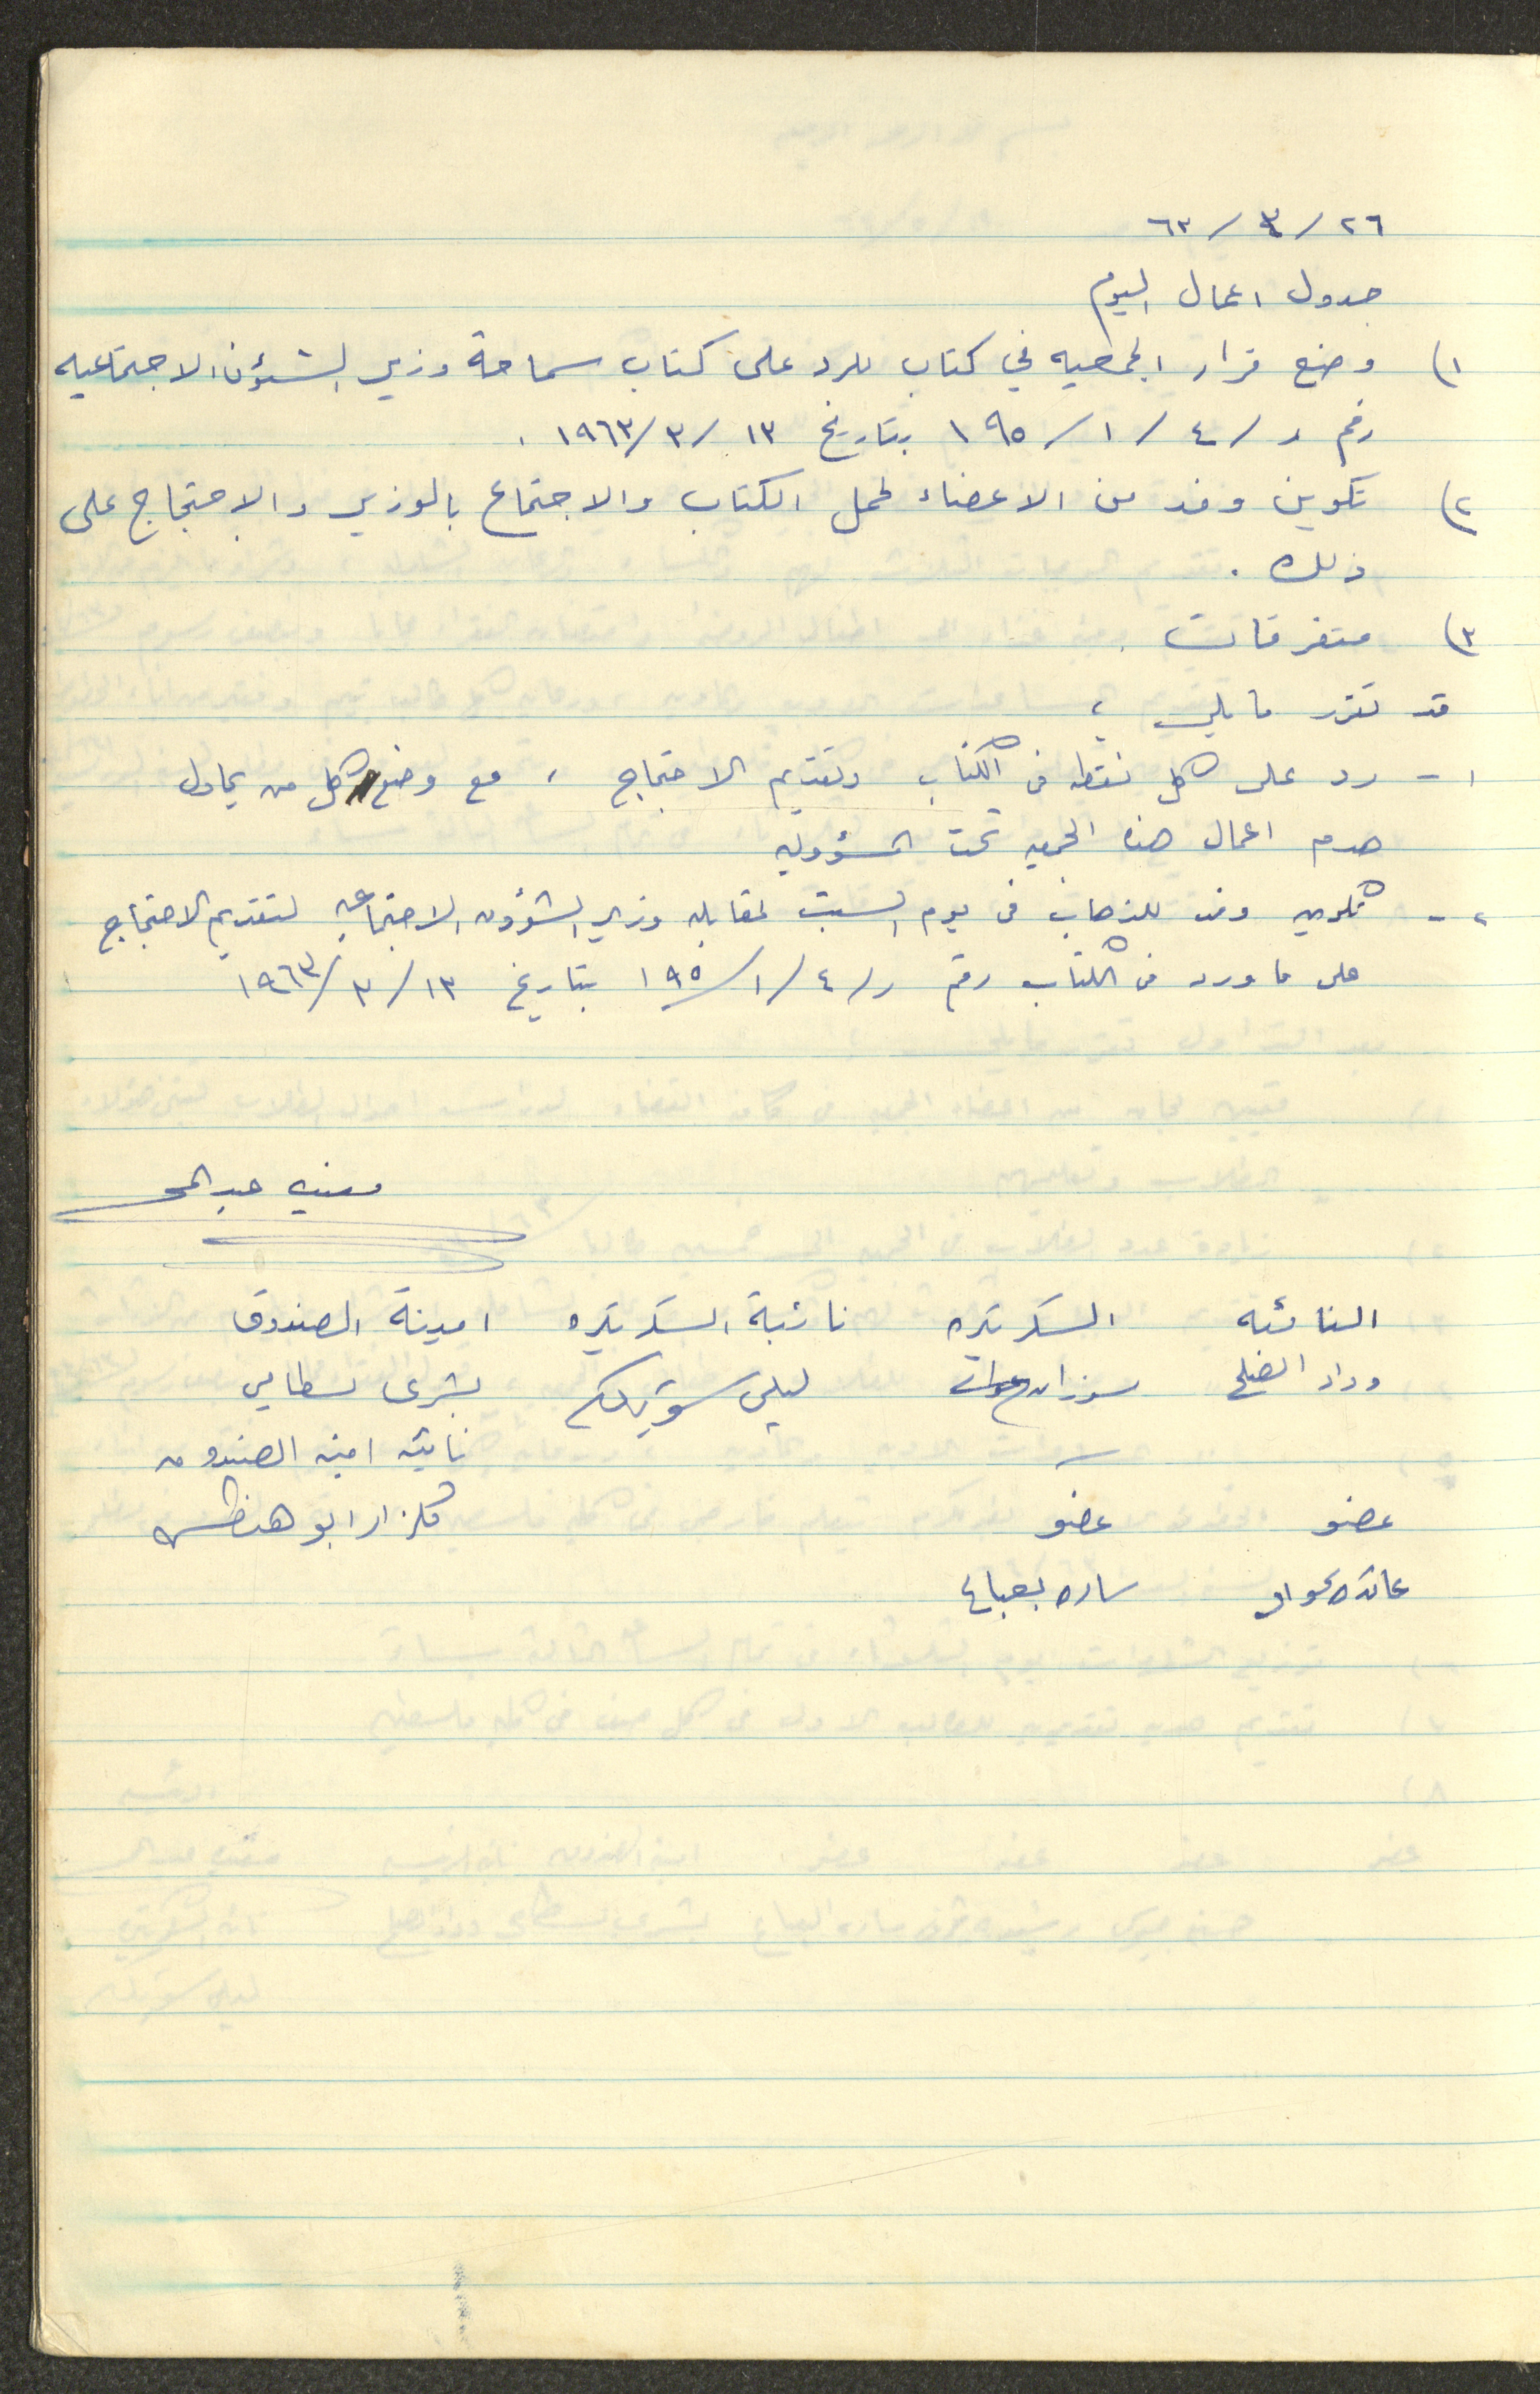 ٢٦/٣/٦٣
جدول اعمال اليوم
١) وضع قرار الجمعيه في كتاب للرد على كتاب سماحة وزير الشؤون الاجتماعيه
رقم ر/٤/١/١٩٥ بتاريخ ١٣/٣/١٩٦٣.
٢) تكوين وفد من الاعضاء لحمل الكتاب والاجتماع بالوزير والاحتجاج على
ذلك.
٣) متفرقات.
قد تقرر ما يلي:
١- رد على كل نقطه في الكتاب وتقديم الاحتجاج، مع وضع كل من يحاول
هدم اعمال هذه الجمعيه تحت المسؤوليه
٢- تكوين وفد للذهاب في يوم السبت لمقابلة وزير الشؤون الاجتماعيه لتقديم الاحتجاج
على ما ورد في الكتاب رقم ر/٤/١/١٩٥ بتاريخ ١٣/٣/١٩٦٣
عبد
النائبه السكرتيره نائبة السكرتيره امينة الصندوق
وداد سوزان ليلى بشرى بسطامي
نائبة امينة الصندوق
عضو عضو ابو
ساره